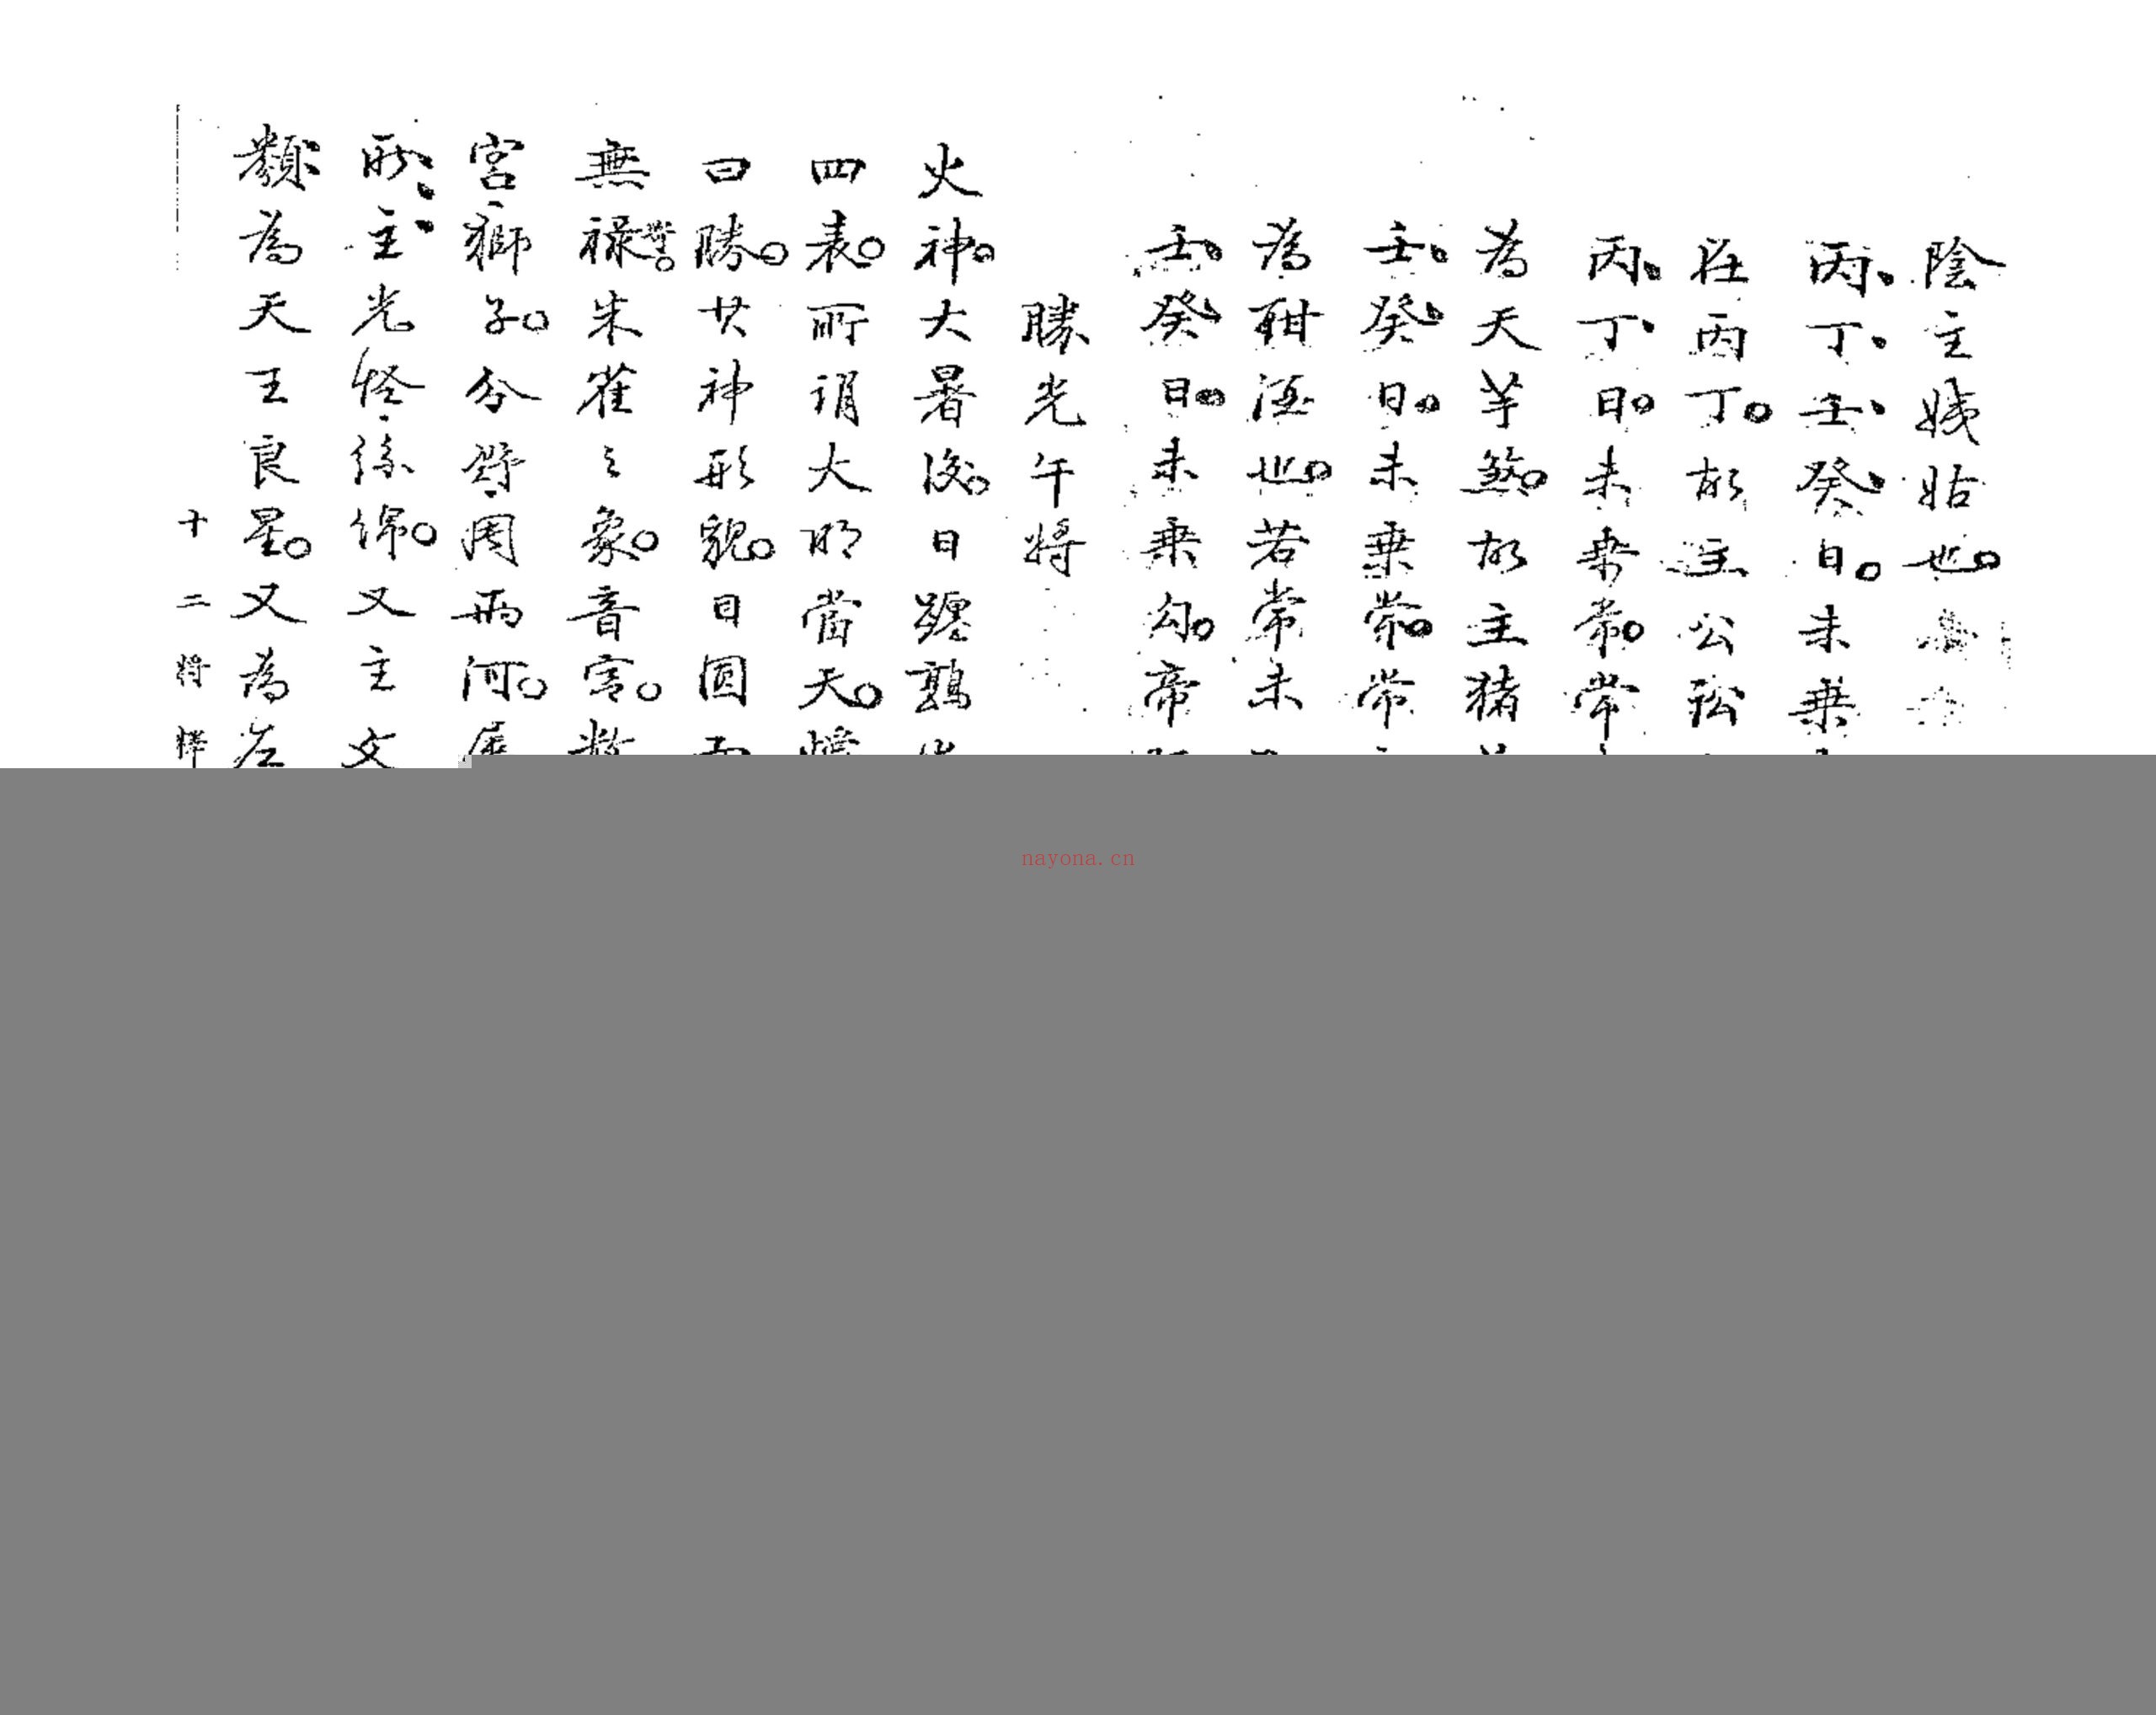 陰主姨姑也。
丙、丁、壬、癸、日。未乗
在丙丁。故主公訟
丙、丁、日。未乗常。常
為天羊煞。故主猪
壬、癸、日。未乗常。常
為酣酒也。若常未
壬、癸、日。未乗勾。帝
勝光午将
火神。大暑後。日躔鶉
四表。所謂大明當天。
曰勝。其神形貌。日圓而
無禄。朱雀之象。音宮。数
宮、獅子。分野、周、兩河。
主光怪、絲綿。又主文
類、為天王良星。又為左
十二将釋
nayona.cn